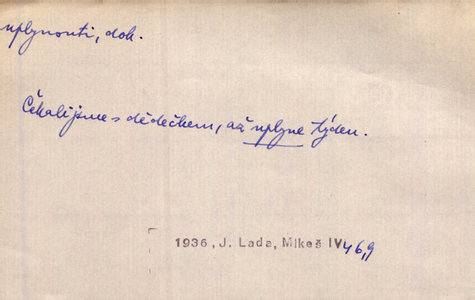 uplynouti, dok.
Čekali jsme s dědečkem, až uplyne týden.
1936, J. Lada, Mikeš IV 46,9